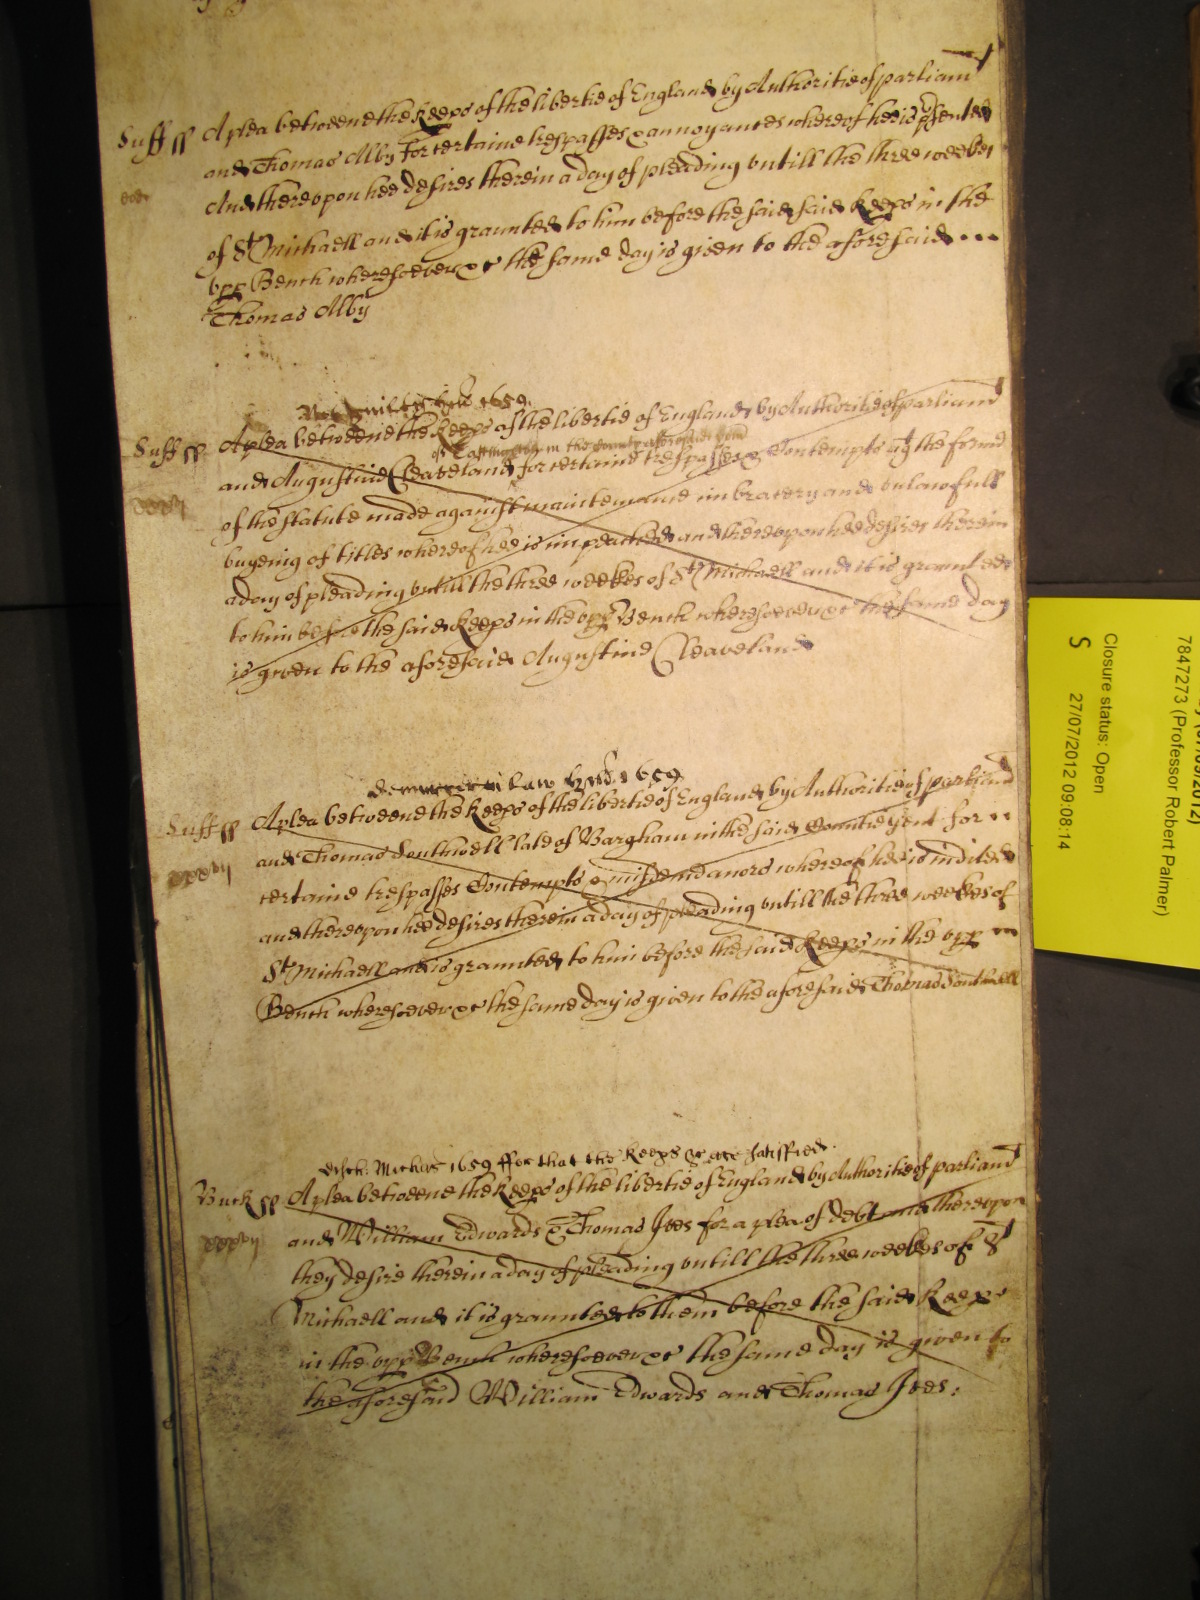 Suff ss A plea betweene the Keeps of the libertie of England by Authoritie of parliamt
and Thomas Alby For certaine trespasses & annoyances whereof hee is psented
And thereopon hee desires therein a day of pleading untill the three weekes
of St Michaell and it is graunted to him before the said said Keeps in the
upp Bench wheresoever &c the same day is given to the aforesaid ...
Thomas Alby
1659.
Suff ss A plea betweene the Keeps of the libertie of England by Authoritie of parliamt
of in the County aforesaid
and Augustine Cleaveland for certaine trespasses & Contempts agt the forme
of the statute made against maintenance imbracery and unlawfull
buyeing of titles whereof hee is impeached and thereopon hee desires therein
a day of pleading untill the three weekes of St Michaell and it is graunted
to him before the said Keeps in the upp Bench wheresoever &c the same day
is given to the aforesaid Augustine Cleaveland
demurrer in law 1659
Suff ss A plea betweene the Keeps of the libertie of England by Authoritie of parliamt
and Thomas Southwell late of Bargham in the said Countie gent for
certaine trespasses Contempts & misdemeanors whereof hee is indited
and thereopon hee desires therein a day of pleading untill the three weekes of
St Michaell and is graunted to him before the said Keeps in the upp
Bench wheresoever &c the same day is given to the aforesaid Thomas Southwell
disch. Michis 1659 ffor that the Keeps &c are satisffied.
Buck ss A plea betweene the Keeps of the libertie of England by Authoritie of parliamt
and William Edwards & Thomas Ives for a plea of debt and thereopon
they desire therein a day of pleading untill the three weekes of St
Michaell and it is graunted to them before the said Keeps
in the upp Bench wheresoever &c the same day is given to
the aforesaid William Edwards and Thomas Ives:
7847273 (Professor Robert Palmer)
Closure status: Open
S 27/07/2012 09:08:14